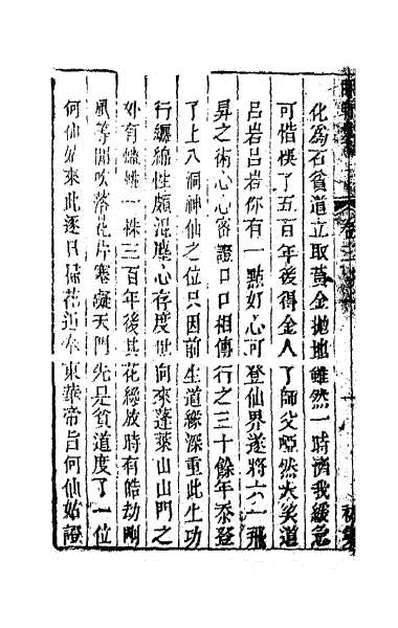 化為石貧道立取黃金拋地雖然一時濟我緩急
可惜悞了五百年後得金人了師父啞然大笑道
呂岩呂岩你有一點好心可登仙界遂將六一飛
昇之術心心密證口口相傳行之三十餘年忝登
了上八洞神仙之位只因前生道緣深重此生功
行纏綿性頗混塵心存度世向來蓬萊山山門之
外有蟠桃一株三百年後其花纔放時有皓劫剛
風等閒吹落花片塞礙天門先是貧道度了一位
何仙姑來此逐日掃花近奉東華帝旨何仙姑證
卷三